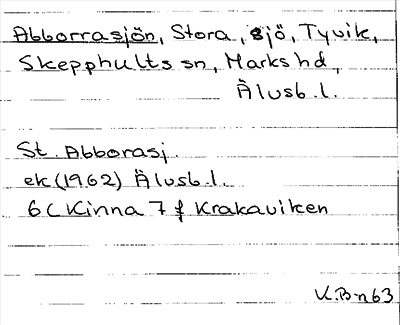 Abborrasjön, Stora, sjö, Tyvik,
Skepphults sn, Marks hd,
Älvsb. l.
St. Abborasj.
ek (1962) Älvsb. l.
6 C Kinna 7 f Krakaviken
K.B-n 63